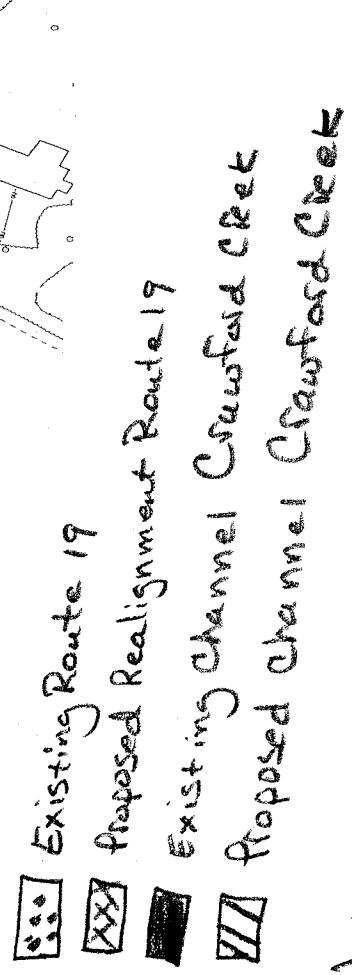 Existing Route 19
Proposed Realignment Route 19
Existing Channel Crawford Creek
Proposed Channel Crawford Creek